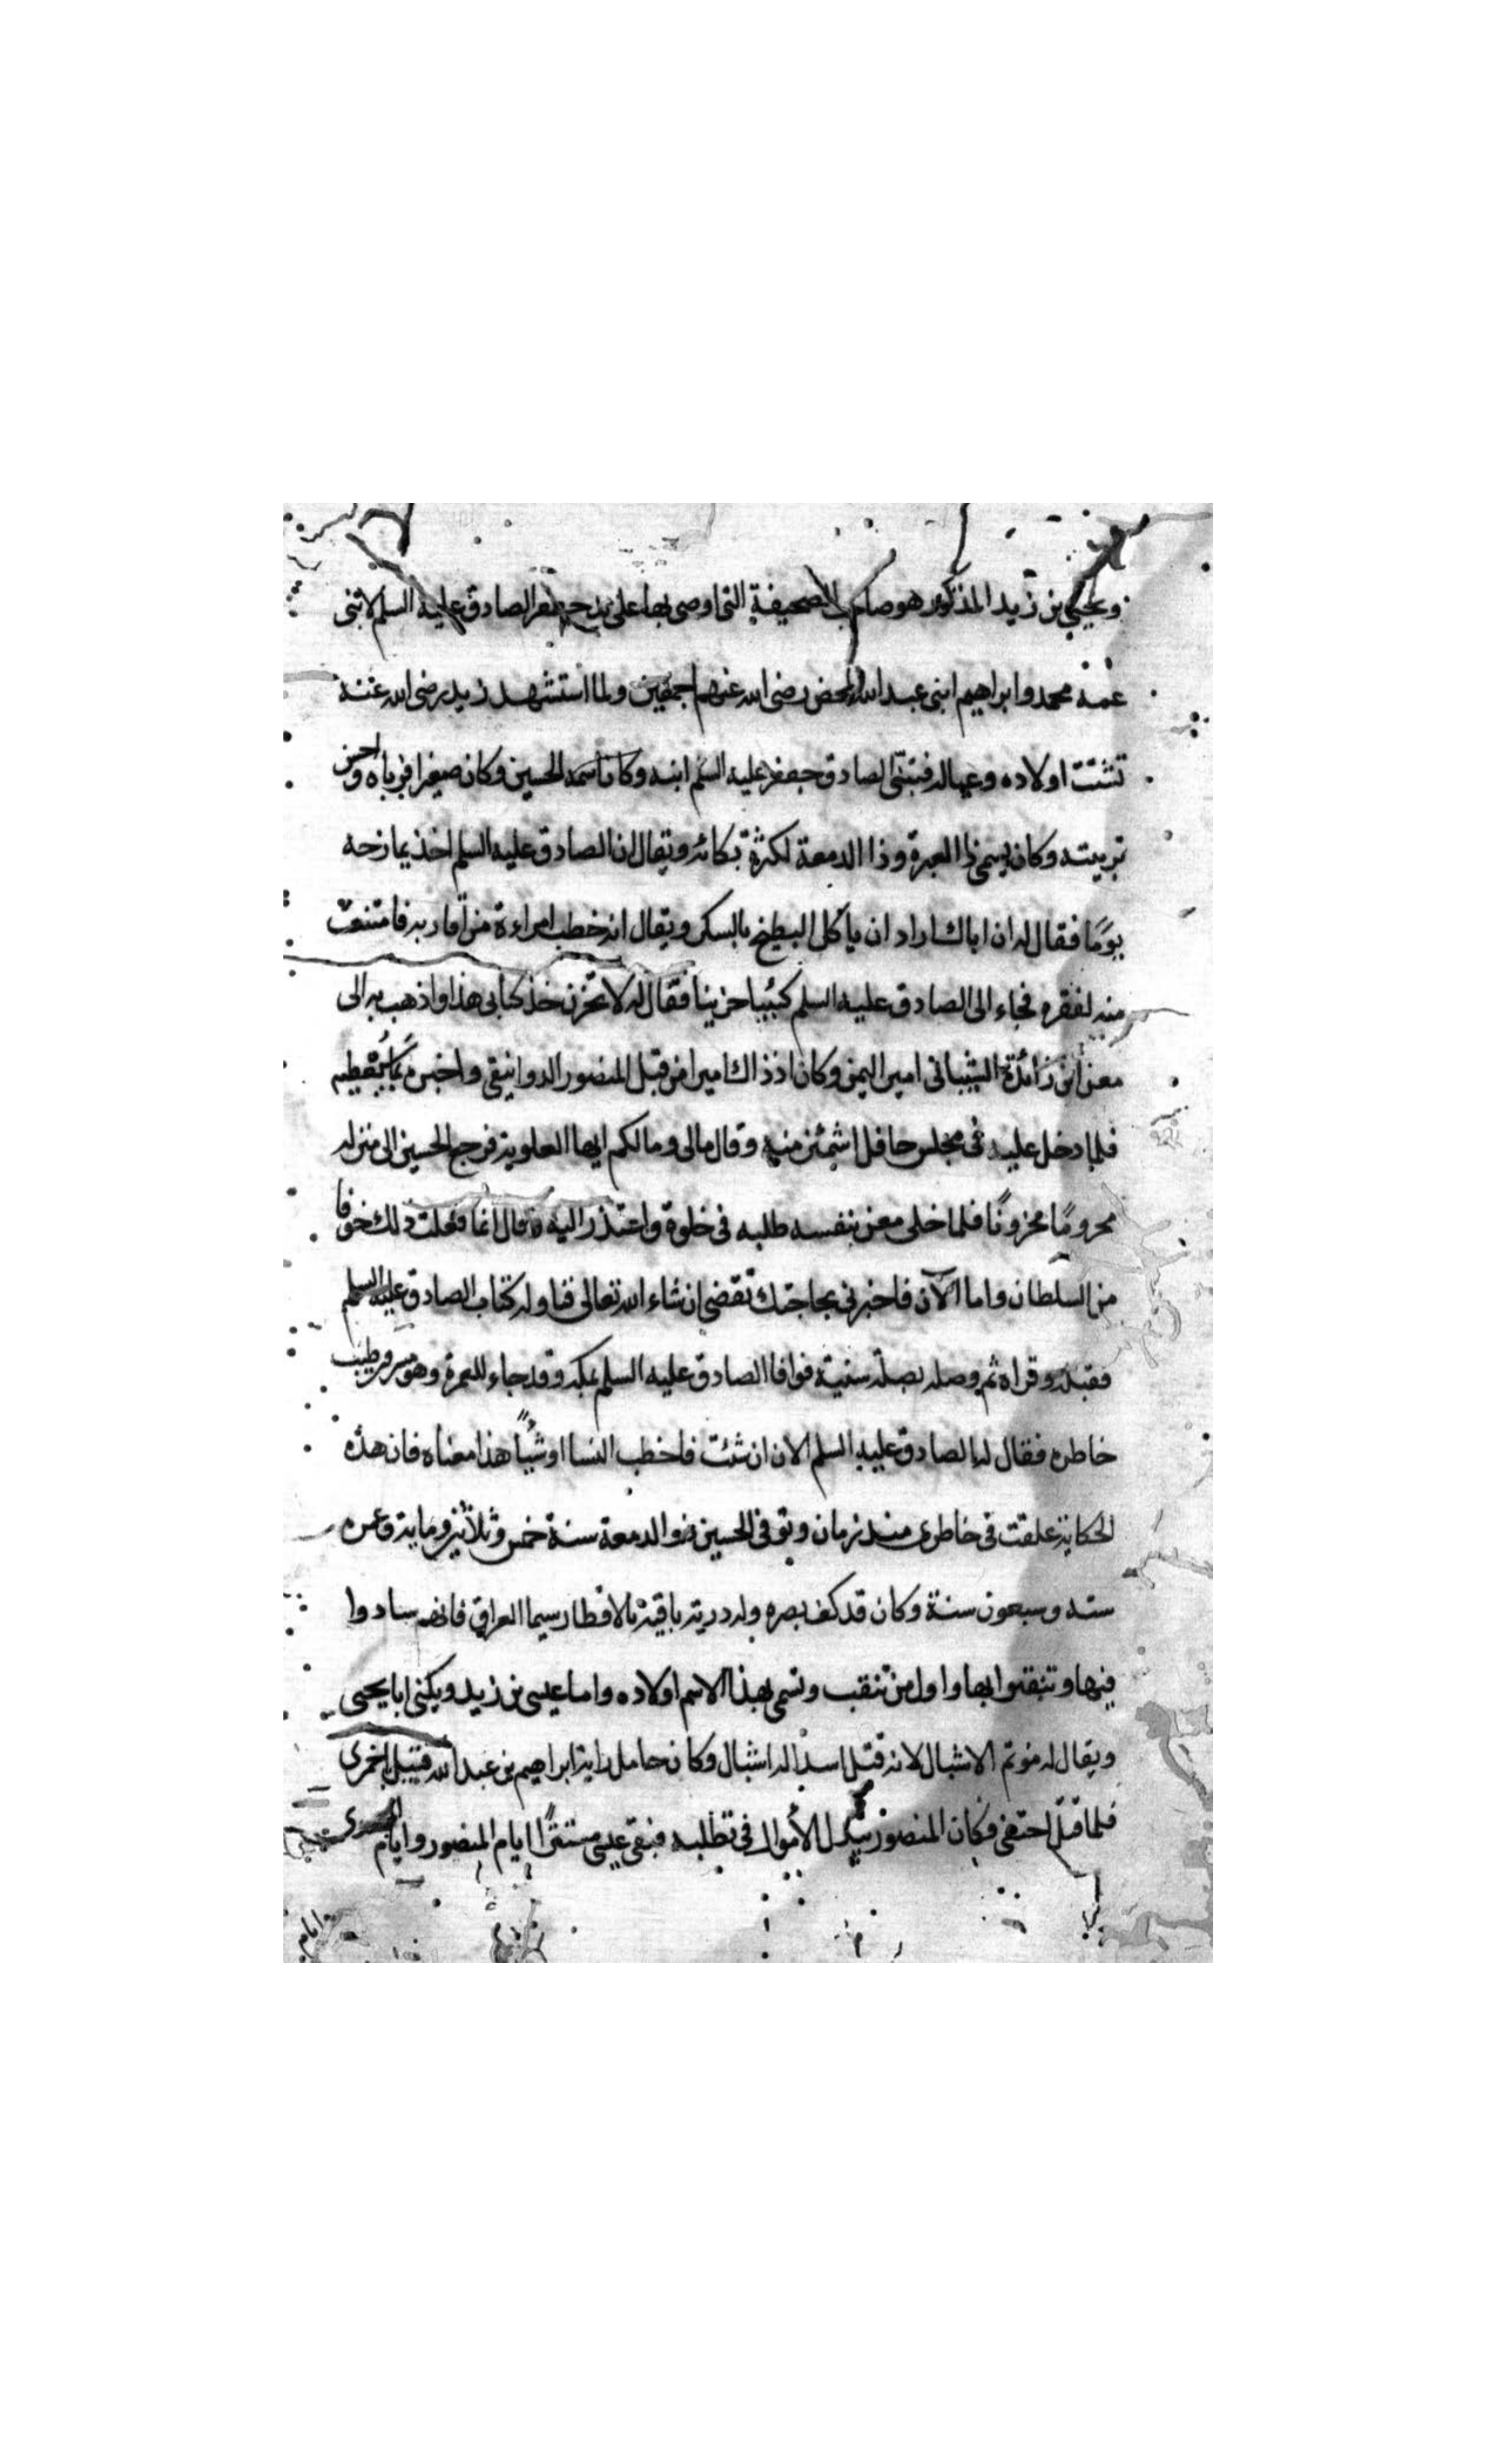 ويحيى بن زيد المذكور هو صاحب الصحيفة التي اوصى بها على يد جعفر الصادق عليه السلم لابني
عمه محمد وابراهيم ابني عبد الله المحض رضى الله عنهم اجمعين ولما استشهد زيد رضى الله عنه
تشتت اولاده وعياله فتبنى الصادق جعفر عليه السلم ابنه وكان اسمه الحسين وكان صغيرا فرباه واحسن
تربيته وكان يسمى ذا العبرة وذا الدمعة لكثرة بكائه ويقال ان الصادق عليه السلم اخذ يمازحه
يومًا فقال له ان اباك اراد ان ياكل البطيخ بالسكر ويقال انه خطب امراءة من اقاربه فامتنعت
منه لفقره فجاء الى الصادق عليه السلم كئيبا حزينا فقال له لا تحزن خذ كتابى هذا واذهب به الى
معن ابن زائدة الشيبانى امير اليمن وكان اذ ذاك اميرا من قبل المنصور الدوانيقى واخبره
فلما دخل عليه فى مجلس حافل اشمئز منه وقال مالى ومالكم ايها العلوية فرجع الحسين الى منزله
محرومًا محزونًا فلما خلى معن بنفسه طلبه فى خلوة واعتذر اليه وقال انما فعلت ذلك خوفا
من السلطان واما الآن فاخبرنى بحاجتك تقضى ان شاء الله تعالى فناوله كتاب الصادق عليه السلم
فقبله وقراه ثم وصله بصلة سنية فوافا الصادق عليه السلم بمكه وقد جاء للعمرة وهو مسرور طيب
خاطره فقال له الصادق عليه السلم الان ان شئت فاخطب النسا او شيًا هذا معناه فان هذه
الحكاية علقت فى خاطرى منذ زمان وتوفى الحسين ذو الدمعة سنة خمس وثلاثين وماية وعمره
سته وسبعون سنة وكان قد كف بصره وله درية باقية بالاقطار سيما العراق فانهم سادوا
فيها وتنقبوا بها واول من تنقب وتسمى بهذا الاسم اولاده واما عيسى بن زيد ويكنى ابا يحيى
ويقال له موتم الاشبال لانه قتل اسدا له اشبال وكان حامل راية ابراهيم بن عبد الله قتيل باخمرى
فلما قتل اختفى وكان المنصور يبذل الأموال فى تطلبه فبقى عيسى مستترًا ايام المنصور وايام
ايام